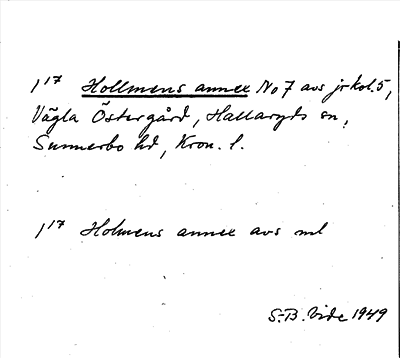 1¹⁷ Hollmens annex No 7 avs jrkol. 5,
Vägla Östergård, Hallaryds sn,
Sunnerbo hd, Kron. l.
1¹⁷ Holmens annex avs ml
S.-B. Vide 1949